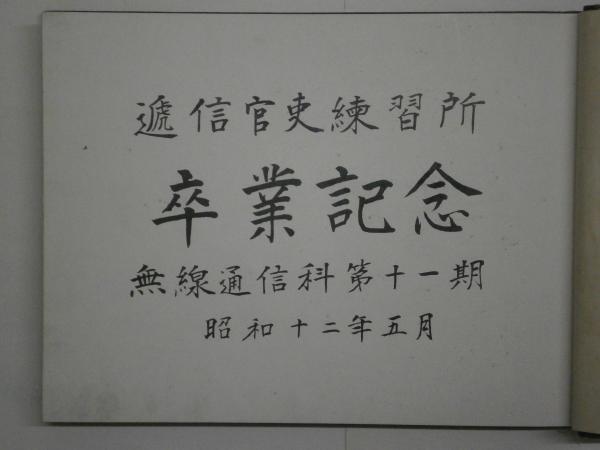 遞信官吏練習所
卒業記念
無線通信科第十一期
昭和十二年五月